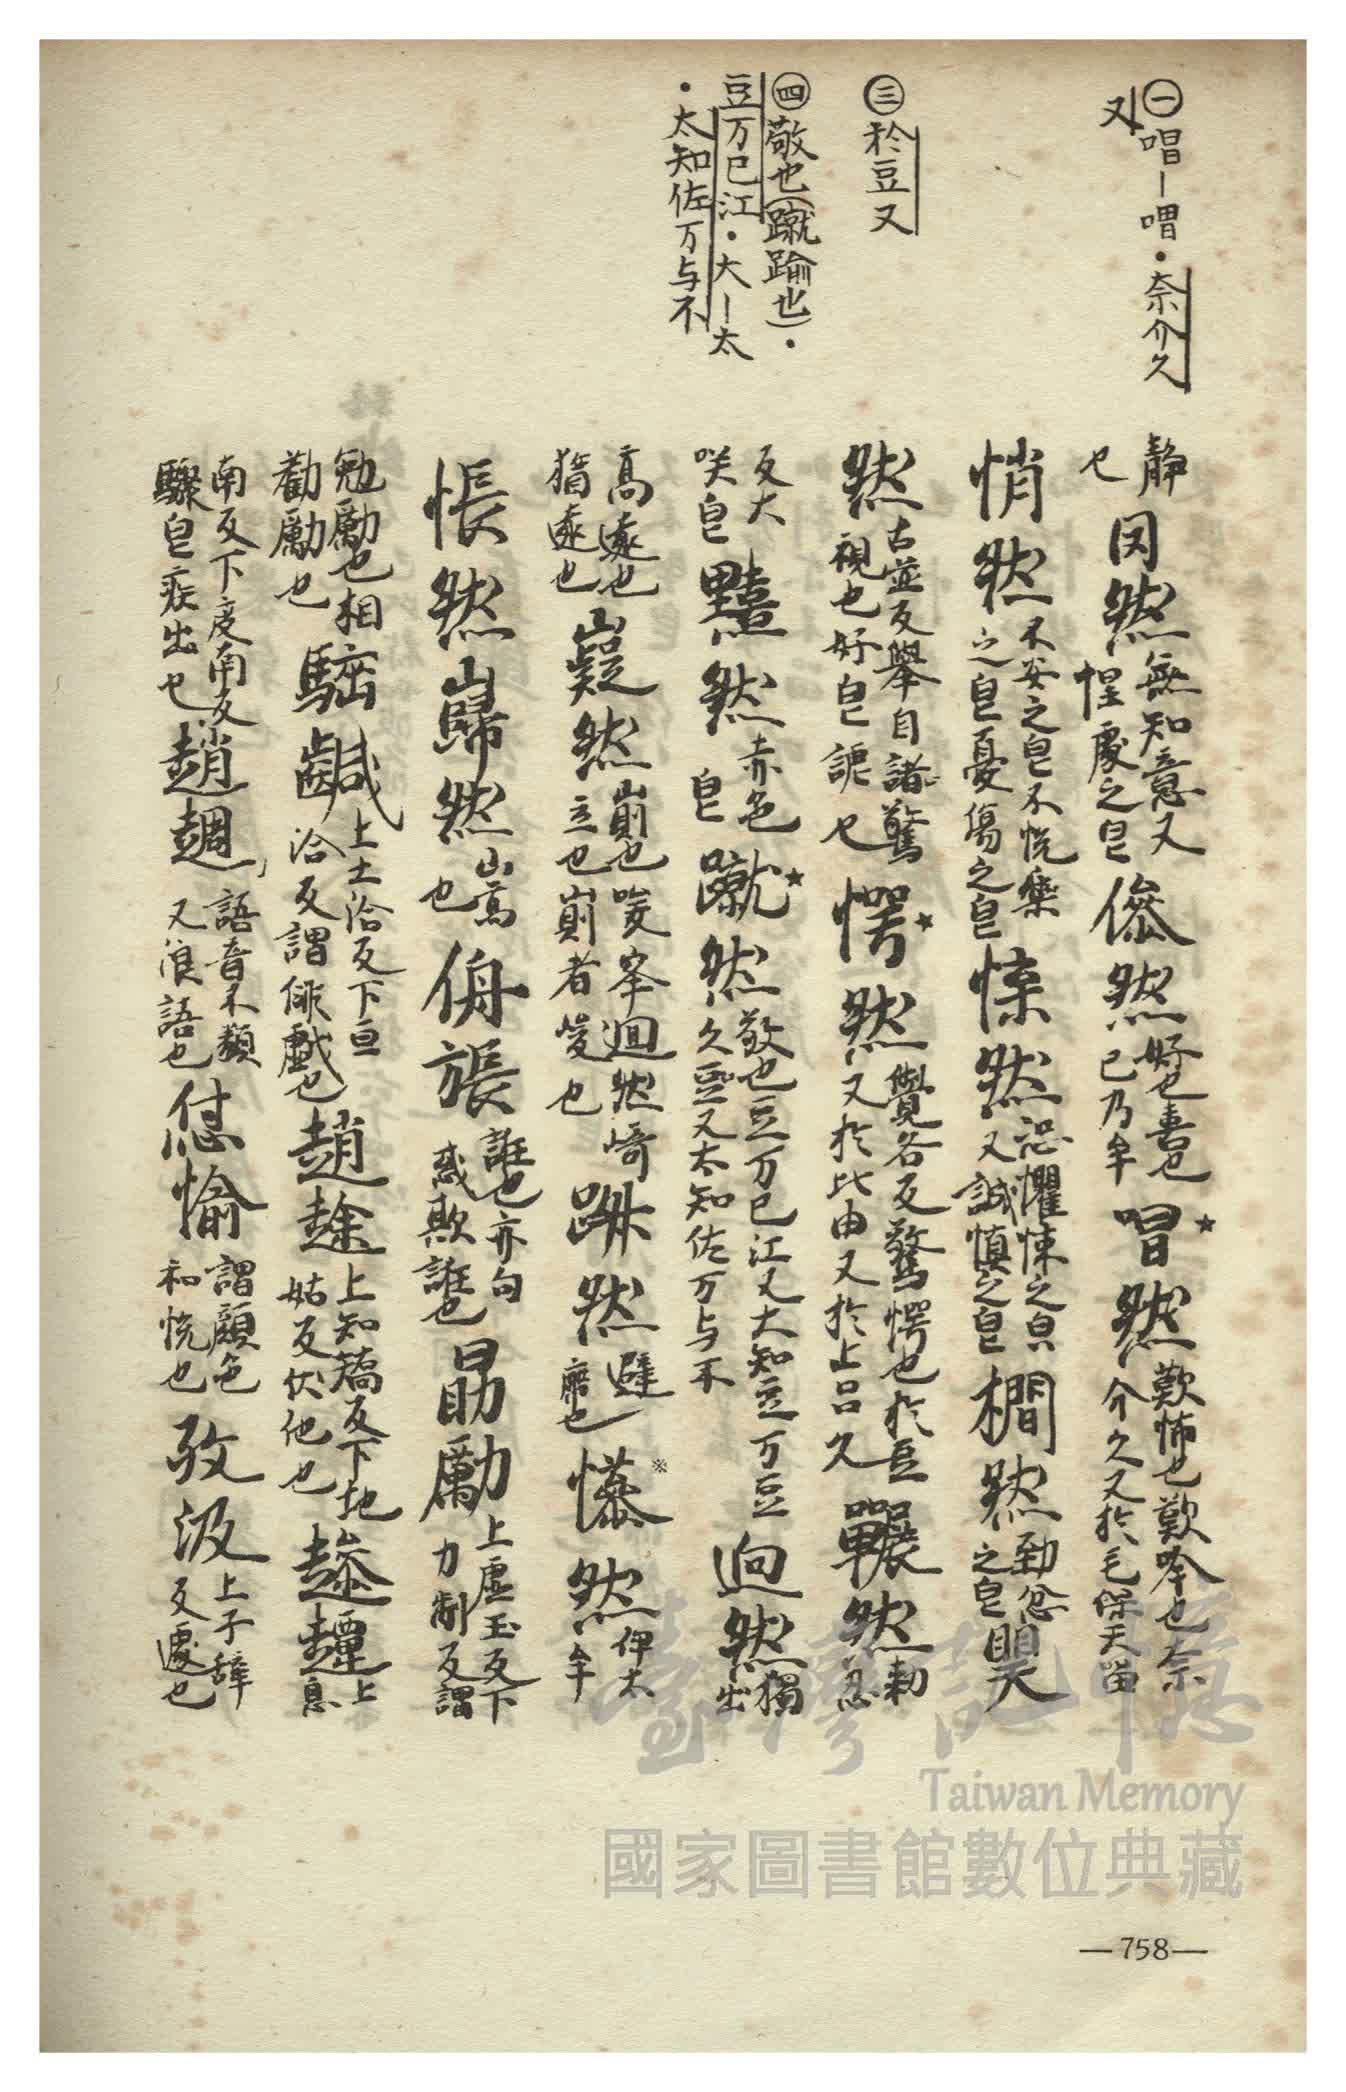 ㊀唱—喟・奈介久
又
㊂於豆又
㊃敬也(蹴踰也)・
豆万已江・大—太
・太知佐万与不
静也 罔然 無知意又惶處之皃 然 好也喜也已乃牟 喟然 歎怖也歎吟也奈介久又於毛保天留
悄然 不安之皃不悦樂之皃憂傷之皃 悚然 忌懼悚之皃又誠慎之皃 然 勁忿之皃
然 古並反舉目諸驚視也好皃謕也 愕然 覺各反驚愕也於豆又於比由又於止呂久 囅然 勅忍
反大咲皃 然 赤色皃 蹴然 敬也豆万已江又大知豆万豆久豆又太知佐万与不 迥然 獨出
高遠也猶遠也 嶷然 崩也峻峯迴然崎立也崱者峻也 然 躃也 然 伊太牟
悵然 巋然 山高也 侜張 誑也亦句惑欺誑也 勗勵 上虚玉反下力制反謂
勉勵也相勸勵也 鹹 上士洽反下亘洽反謂俳戲也 趙 上知矯反下地姑反伏他也 上息
南反下度南反驟皃疾出也 趙 語音不類又浪語也 愉 謂顔色和悦也 孜汲 上子辞反遽也
Taiwan Memory
臺灣記憶
國家圖書館數位典藏
—758—